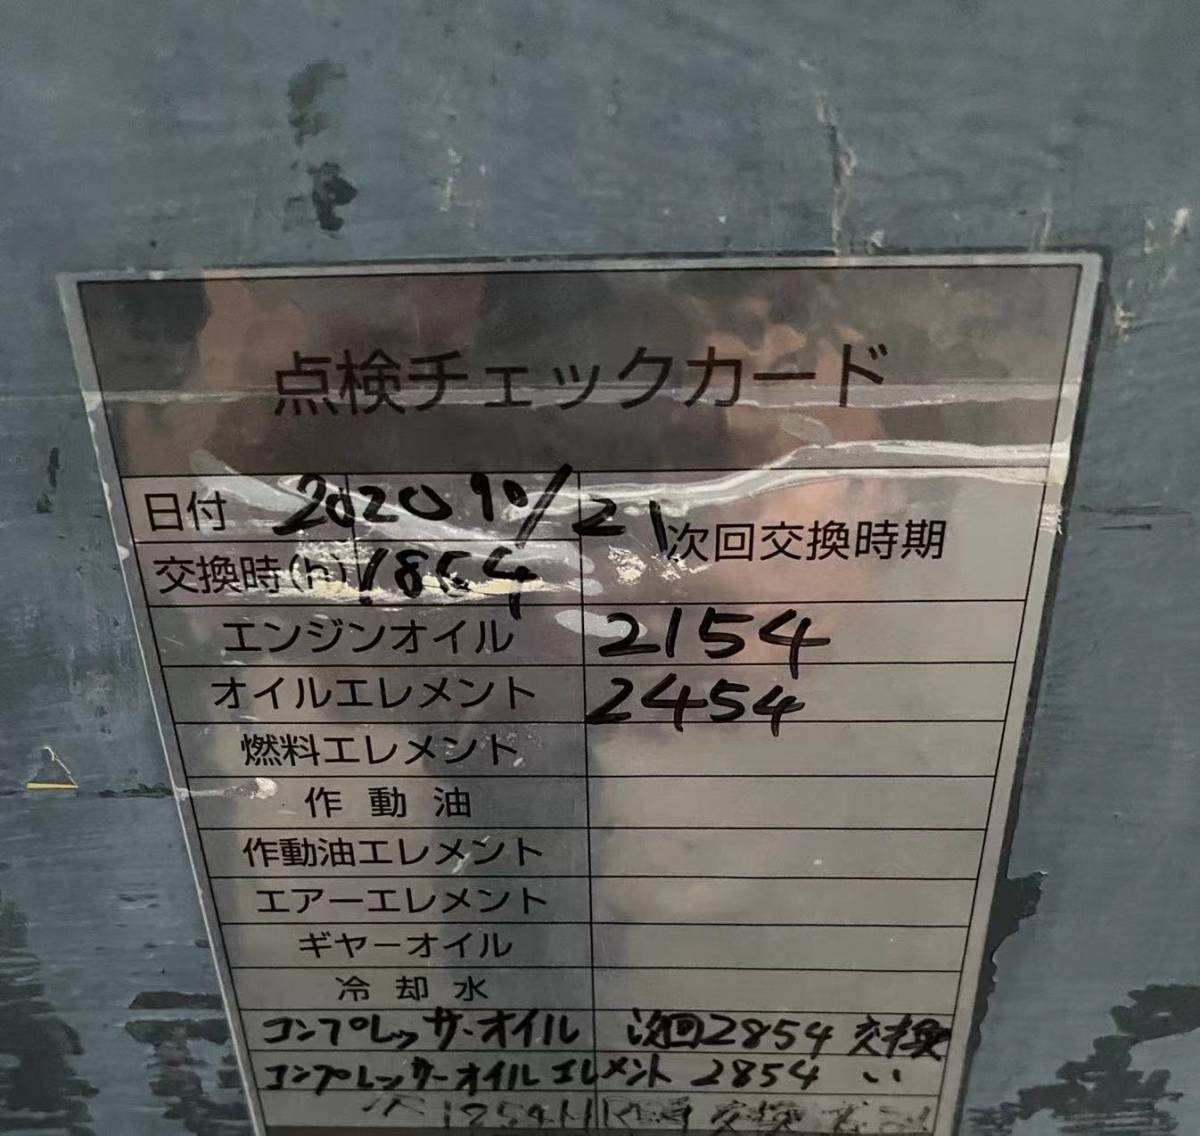 点検チェックカード
日付 2020 10/21
次回交換時期
交換時(h) 1854
エンジンオイル 2154
オイルエレメント 2454
燃料エレメント
作動油
作動油エレメント
エアーエレメント
ギヤーオイル
冷却水
コンプレッサーオイル 次回2854 交換
コンプレッサーオイルエレメント 2854 〃
交換